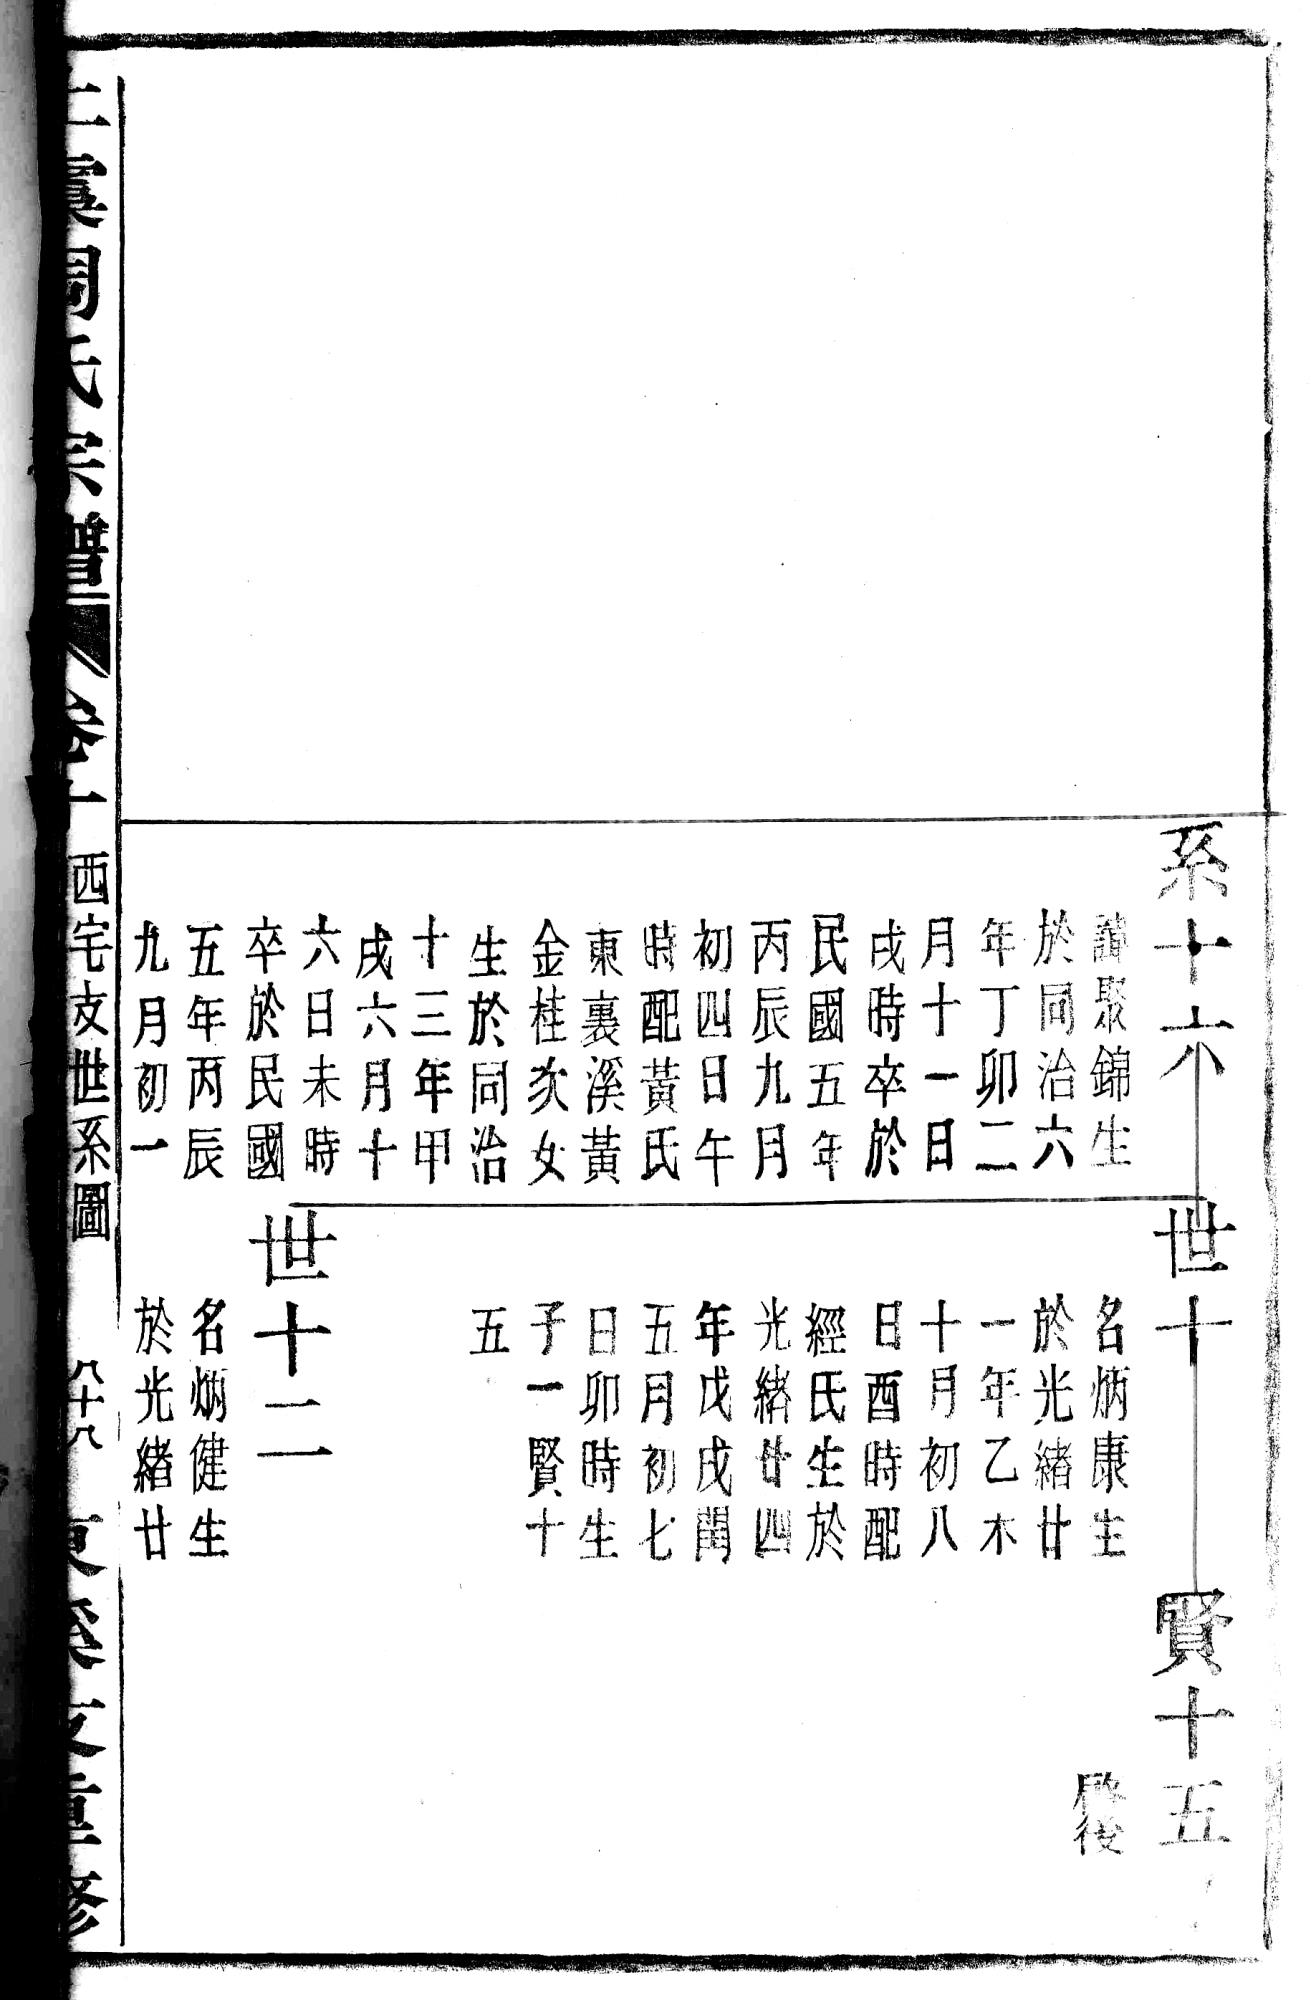 系十六
諱聚錦生
於同治六
年丁卯二
月十一日
戌時卒於
民國五年
丙辰九月
初四日午
時配黃氏
東裏溪黃
金桂次女
生於同治
十三年甲
戌六月十
六日未時
卒於民國
五年丙辰
九月初一
世十
名炳康生
於光緒廿
一年乙木
十月初八
日酉時配
經氏生於
光緒廿四
年戊戌閏
五月初七
日卯時生
子一賢十
五
世十二
名炳健生
於光緒廿
賢十五
後
上虞周氏宗譜
卷十
西宅支世系圖
八十八
東溪支重修